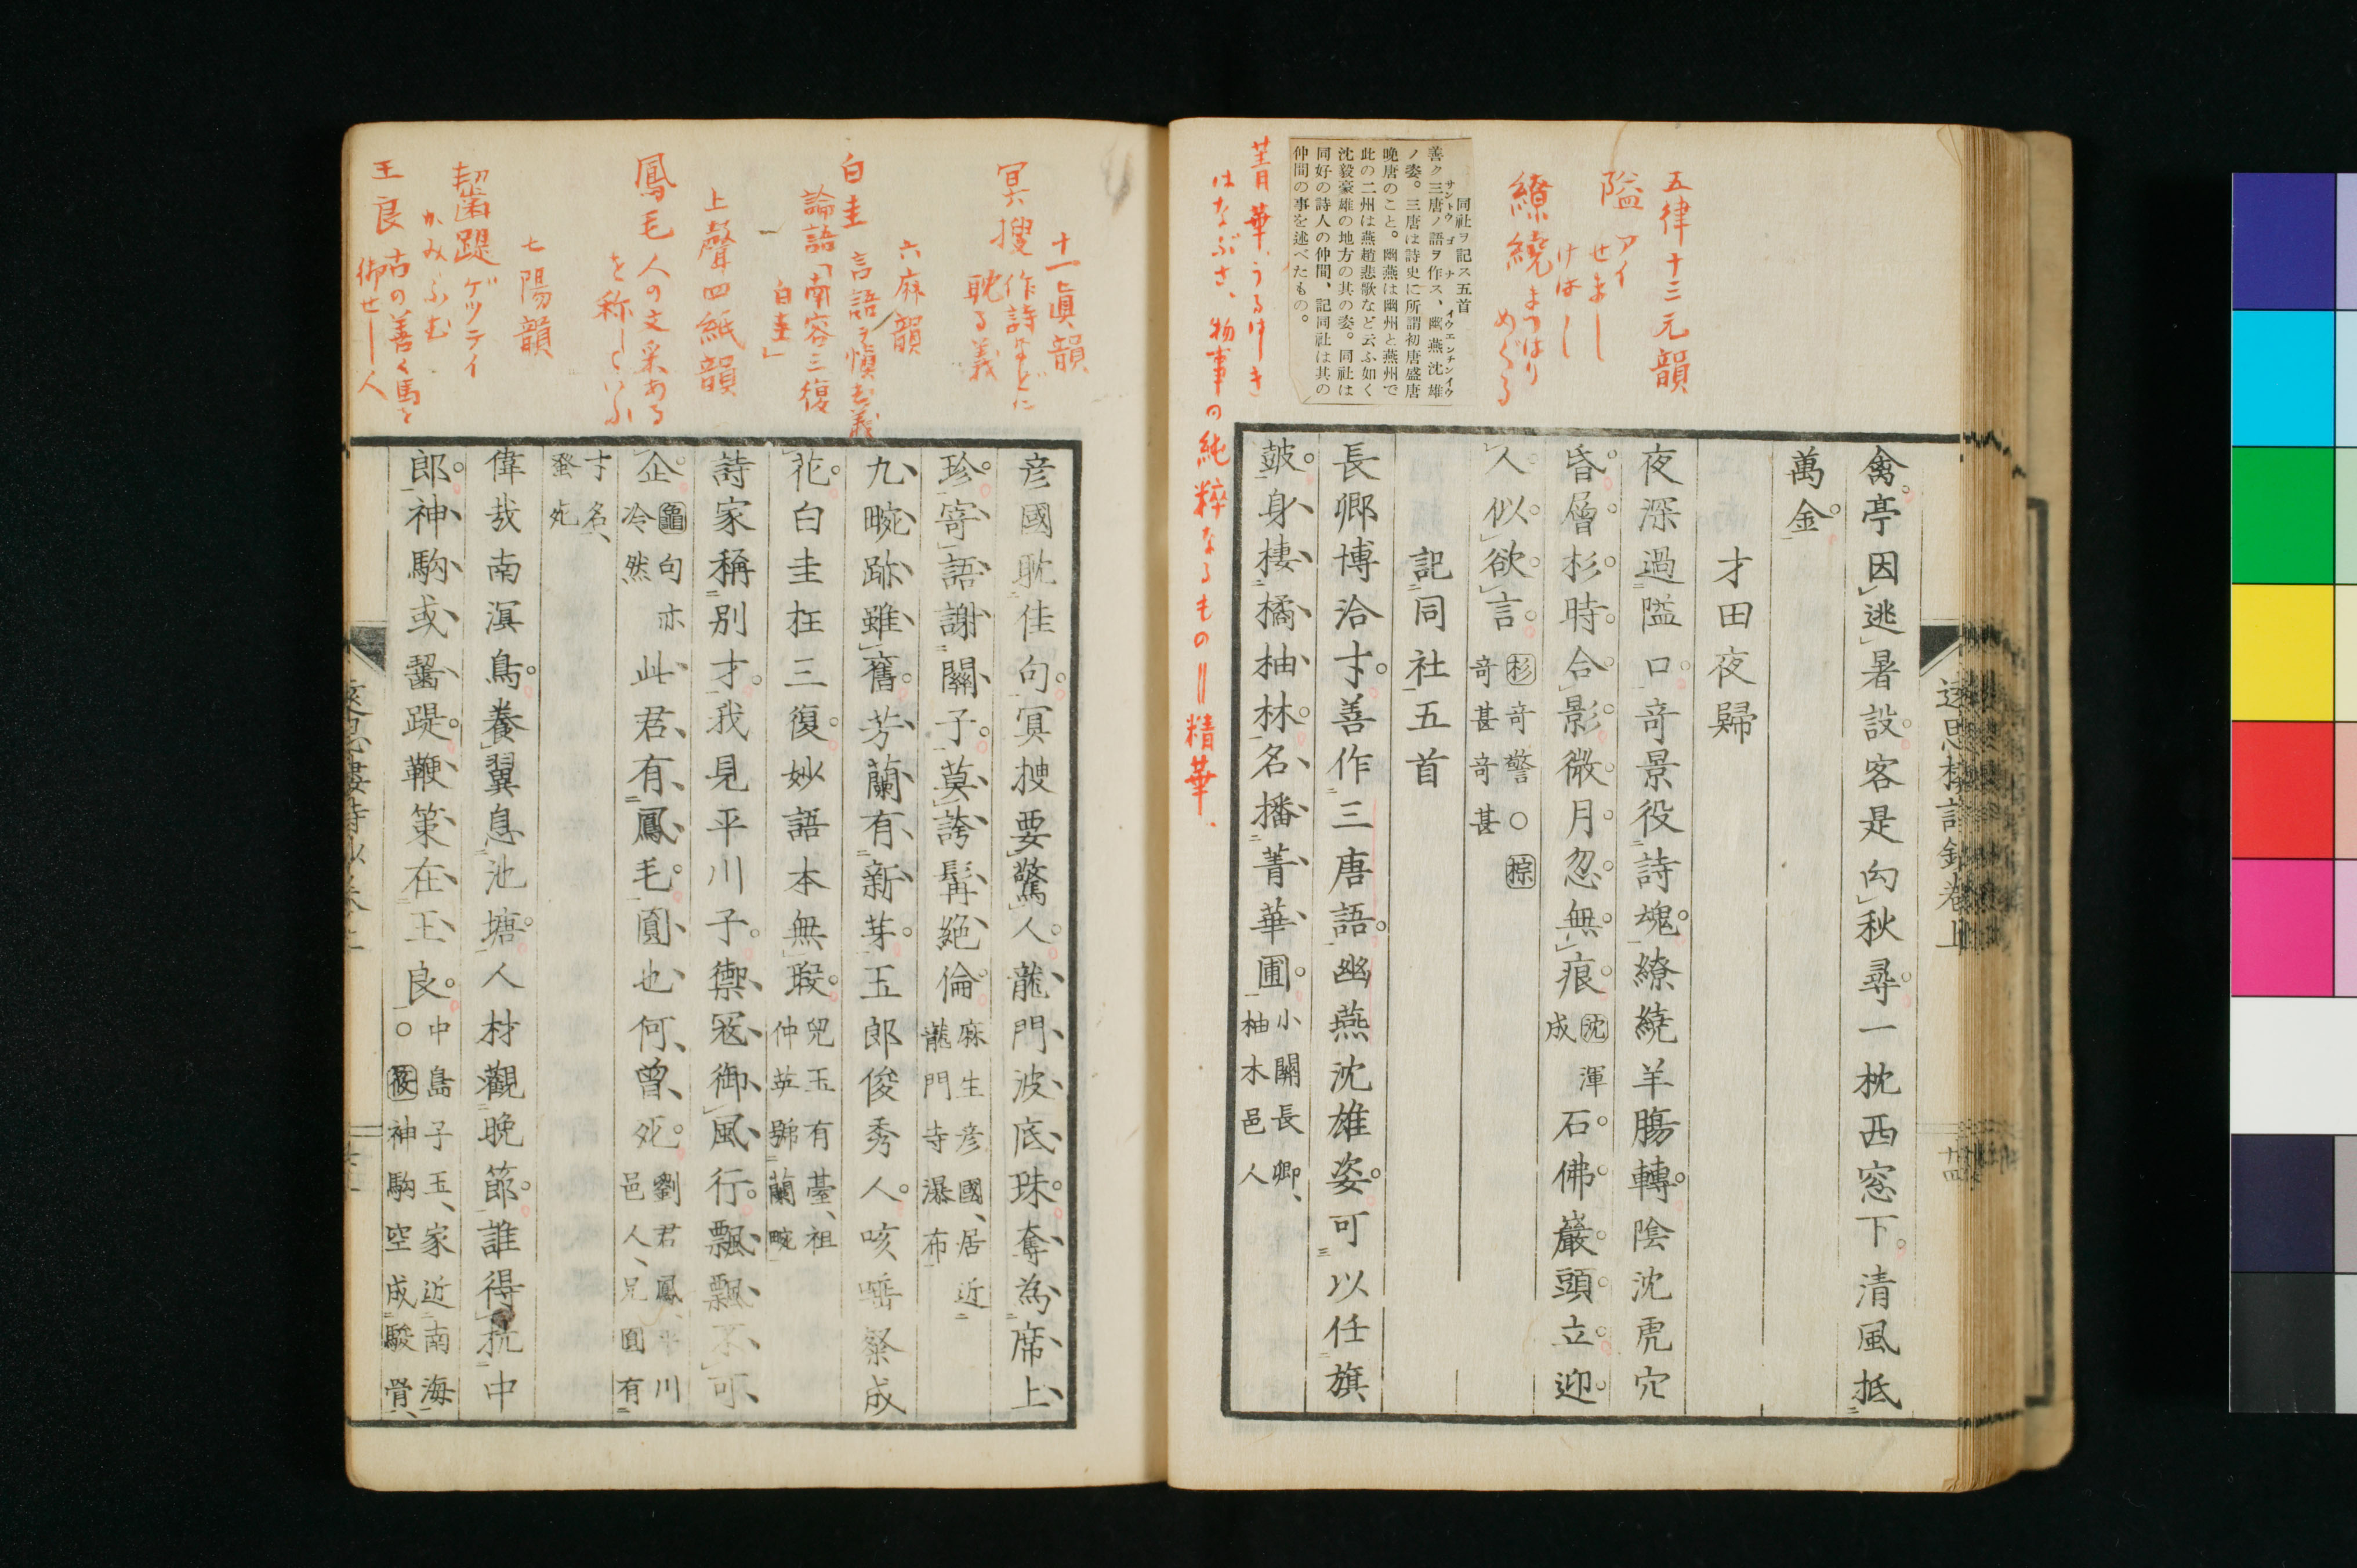 五律十三元韻
隘 アイ
せまし
けはし
繚繞 まつはり
めぐる
同社ヲ記ス五首
善ク三唐ノ語ヲ作ス、幽燕沈雄
ノ姿。三唐は詩史に所謂初唐盛唐
晩唐のこと。幽燕は幽州と燕州で
此の二州は燕趙悲歌など云ふ如く
沈毅豪雄の地方の其の姿。同社は
同好の詩人の仲間、記同社は其の
仲間の事を述べたもの。
菁華、うるはしき
はなぶさ、物事の純粋なるもの=精華、
禽亭因逃暑設客是向秋尋一枕西窓下清風抵
萬金
才田夜歸
夜深過隘口奇景役詩魂繚繞羊腸轉陰沈虎穴
昏層杉時合影微月忽無痕
沈渾
成
石佛巖頭立迎
人似欲言
杉奇警○棕
奇甚奇甚
記同社五首
長卿博洽才善作三唐語幽燕沈雄姿可以任旗
鼓身棲橘柚林名播菁華圃
小關長卿、
柚木邑人
十一眞韻
冥搜 作詩などに
耽る義
六麻韻
白圭 言語ヲ愼む義
論語「南容三復
白圭」
上聲四紙韻
鳳毛 人の文采ある
を称していふ
七陽韻
齧踶 ゲツテイ
かみふむ
王良 古の善く馬を
御せし人
彦國耽佳句冥搜要驚人龍門波底珠奪為席上
珍寄語謝關子莫誇髯絕倫
麻生彦國、居近
龍門寺瀑布
九畹跡雖舊芳蘭有新芽玉郎俊秀人咳唾粲成
花白圭在三復妙語本無瑕
兒玉有臺、祖
仲英號蘭畹
詩家稱別才我見平川子禦寇御風行飄飄不可
企
龜句亦
冷然
此君有鳳毛圓也何曾死
劉君鳳、平川
邑人、兄圓有
才名、
蚤死
偉哉南溟鳥養翼息池塘人材觀晚節誰得抗中
郎神駒或齧踶鞭策在王良
中島子玉、家近南海
○筱神駒空成駿骨、